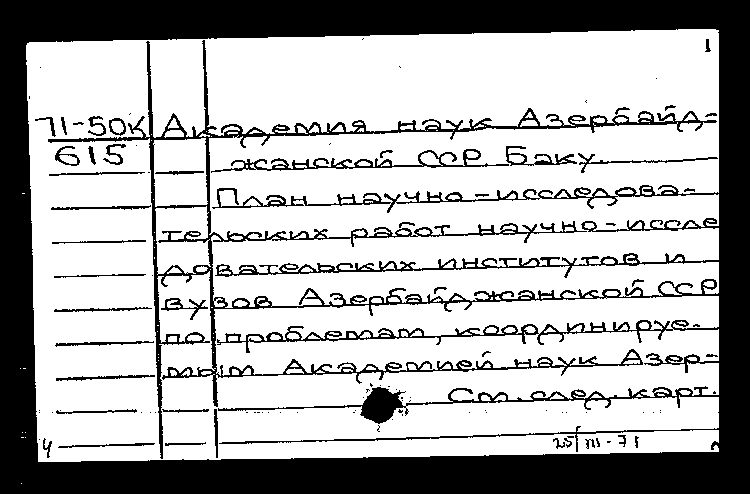 1
71-50К Академия наук Азербайд-
615 жанской ССР. Баку.
План научно-исследова-
тельских работ научно-иссле
довательских институтов и
вузов Азербайджанской ССР
по проблемам, координируе-
мым Академией наук Азер-
См. след. карт.
4 25/III-71